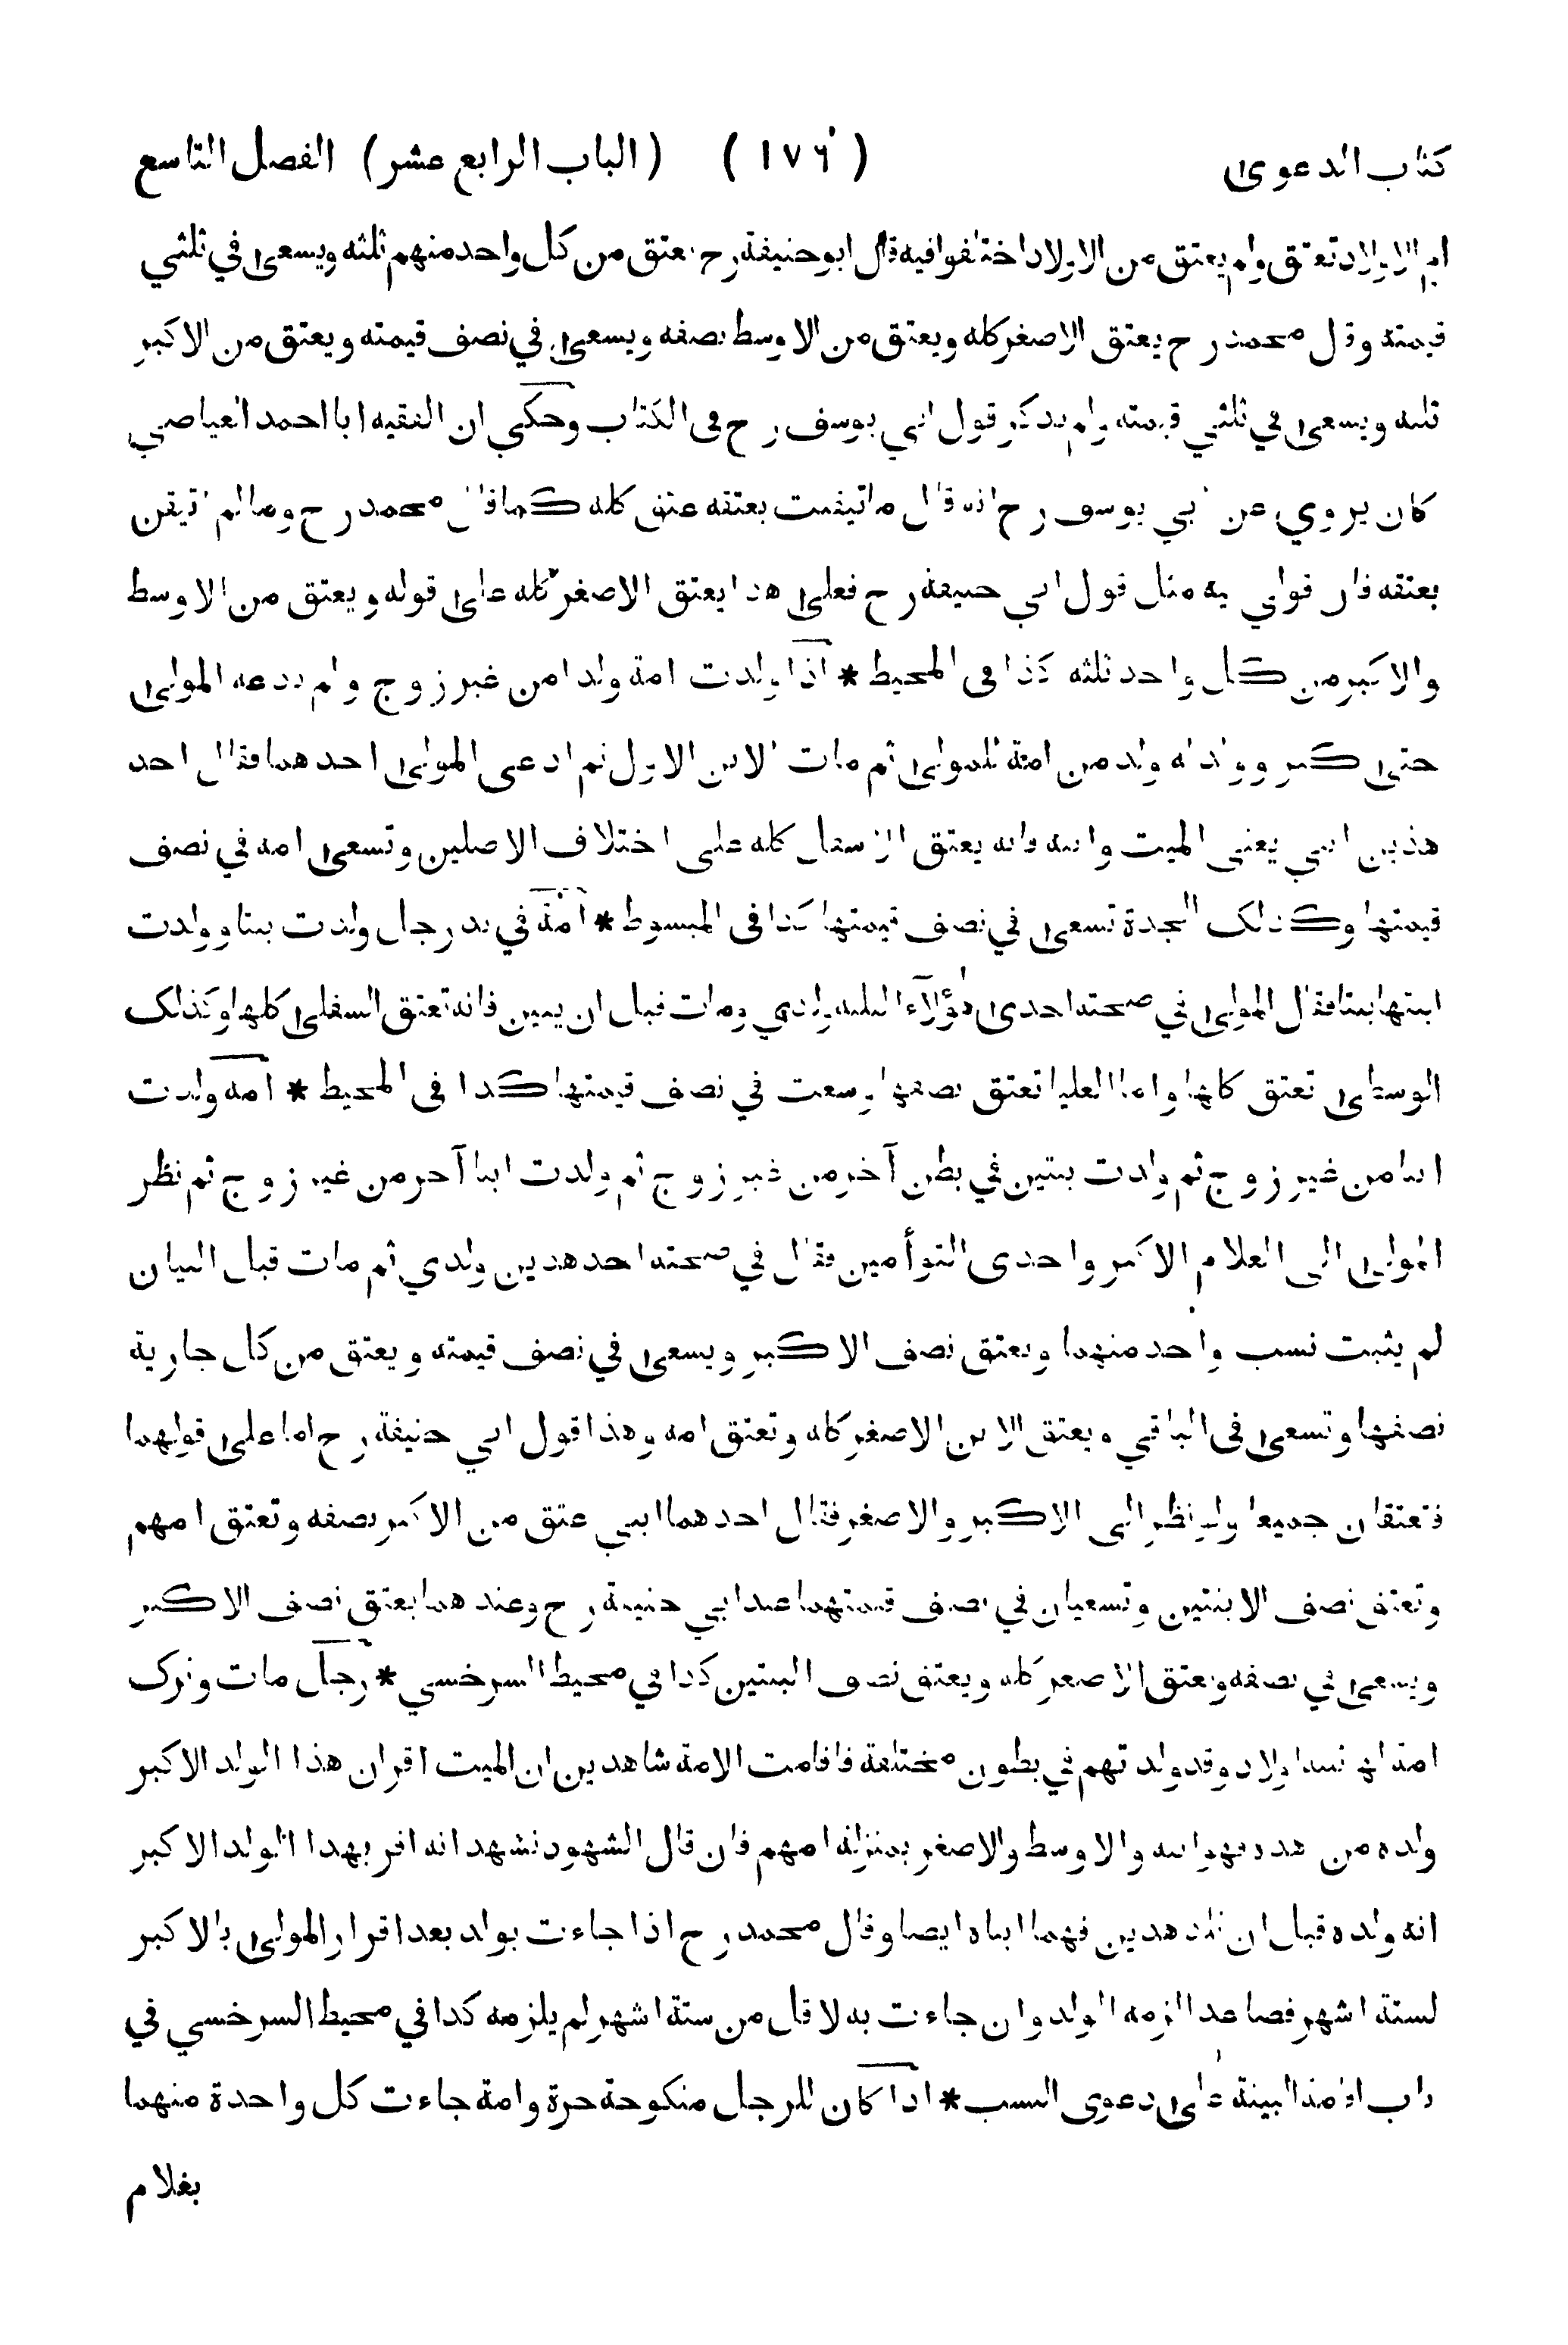 كتاب الدعوى ( ١٧٦ ) (الباب الرابع عشر) الفصل التاسع
ام الاولاد تعتق ولم يعتق من الاولاد اختلفوا فيه قال ابو حنيفة رح يعتق من كل واحد منهم ثلثه ويسعى في ثلثي
قيمته وقال محمد رح يعتق الاصغر كله ويعتق من الاوسط نصفه ويسعى في نصف قيمته ويعتق من الاكبر
ثلثه ويسعى في ثلثي قيمته ولم يذكر قول ابي يوسف رح في الكتاب وحكي ان الفقيه ابا احمد العياضي
كان يروي عن ابي يوسف رح انه قال ما تيقنت بعتقه عتق كله كما قال محمد رح وما لم اتيقن
بعتقه فان قولي فيه مثل قول ابي حنيفة رح فعلى هذا يعتق الاصغر كله على قوله ويعتق من الاوسط
والاكبر من كل واحد ثلثه كذا في المحيط * اذا ولدت امة ولدا من غير زوج ولم يدعه المولى
حتى كبر وولد له ولد من امة للمولى ثم مات الابن الاول ثم ادعى المولى احدهما فقال احد
هذين ابني يعني الميت وابنه فانه يعتق الاسفل كله على اختلاف الاصلين وتسعى امه في نصف
قيمتها وكذلك الجدة تسعى في نصف قيمتها كذا في المبسوط * امة في يد رجل ولدت بنتا وولدت
ابنتها بنتا فقال المولى في صحته احدى هؤلآء الثلثه ولدي ومات قبل ان يبين فانه تعتق السفلى كلها وكذلك
الوسطى تعتق كلها واما العليا تعتق نصفها وسعت في نصف قيمتها كذا في المحيط * امة ولدت
ابنا من غير زوج ثم ولدت بنتين في بطن آخر من غير زوج ثم ولدت ابنا آخر من غير زوج ثم نظر
المولى الى الغلام الاكبر واحدى التوأمين فقال في صحته احد هذين ولدي ثم مات قبل البيان
لم يثبت نسب واحد منهما ويعتق نصف الاكبر ويسعى في نصف قيمته ويعتق من كل جارية
نصفها وتسعى في الباقي ويعتق الابن الاصغر كله وتعتق امه وهذا قول ابي حنيفة رح اما على قولهما
فتعتقان جميعا ولو نظر الى الاكبر والاصغر فقال احدهما ابني عتق من الاكبر نصفه وتعتق امهم
وتعتق نصف الابنتين وتسعيان في نصف قيمتهما عند ابي حنيفة رح وعندهما يعتق نصف الاكبر
ويسعى في نصفه ويعتق الاصغر كله ويعتق نصف البنتين كذا في محيط السرخسي * رجل مات وترك
امة لها ثلثة اولاد وقد ولدتهم في بطون مختلفة فاقامت الامة شاهدين ان الميت اقر ان هذا الولد الاكبر
ولده من هذه فهو ابنه والاوسط والاصغر بمنزلة امهم فان قال الشهود نشهد انه اقر بهذا الولد الاكبر
انه ولده قبل ان تلد هذين فهما ابناه ايضا وقال محمد رح اذا جاءت بولد بعد اقرار المولى بالاكبر
لستة اشهر فصاعدا لزمه الولد وان جاءت به لاقل من ستة اشهر لم يلزمه كذا في محيط السرخسي في
باب اقامة البينة على دعوى النسب * اذا كان للرجل منكوحة حرة وامة جاءت كل واحدة منهما
بغلام